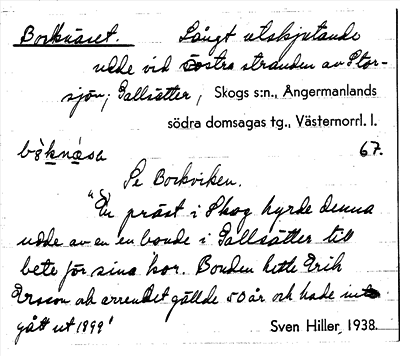 Bocknäset. Långt utskjutande
udde vid östra stranden av Stor-
sjön; Gallsätter, Skogs s:n., Ångermanlands
södra domsagas tg., Västernorrl. l.
bòknǝ̀sa 67.
Se Bockviken.
"En präst i Skog hyrde denna
udde av en bonde i Gallsätter till
bete för sina kor. Bonden hette Erik
Ersson och arrendet gällde 50 år och hade inte
gått ut 1899"
Sven Hiller, 1938.